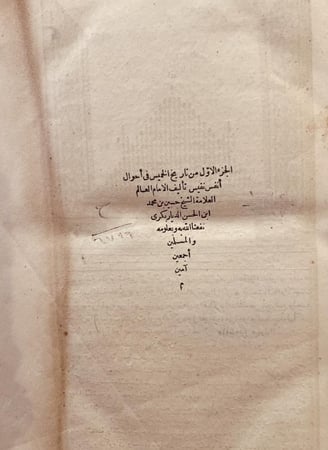 الجزء الاول من تاريخ الخميس فى أحوال
أنفس نفيس تأليف الامام العالم
العلامة الشيخ حسين بن محمد
ابن الحسن الديار بكرى
نفعنا الله به وبعلومه
والمسلمين
أجمعين
آمين
م